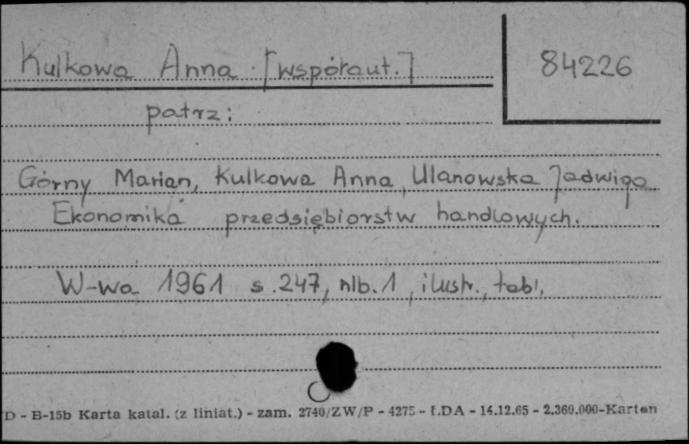 Kulkowa Anna [współaut.]
84226
patrz:
Górny Marian, Kulkowa Anna, Ulanowska Jadwiga
Ekonomika przedsiębiorstw handlowych.
W-wa 1961 s. 247, nlb. 1, ilustr., tabl.
D - B-15b Karta katal. (z liniat.) - zam. 2740/ZW/P - 4275 - LDA - 14.12.65 - 2.360.000-Karten